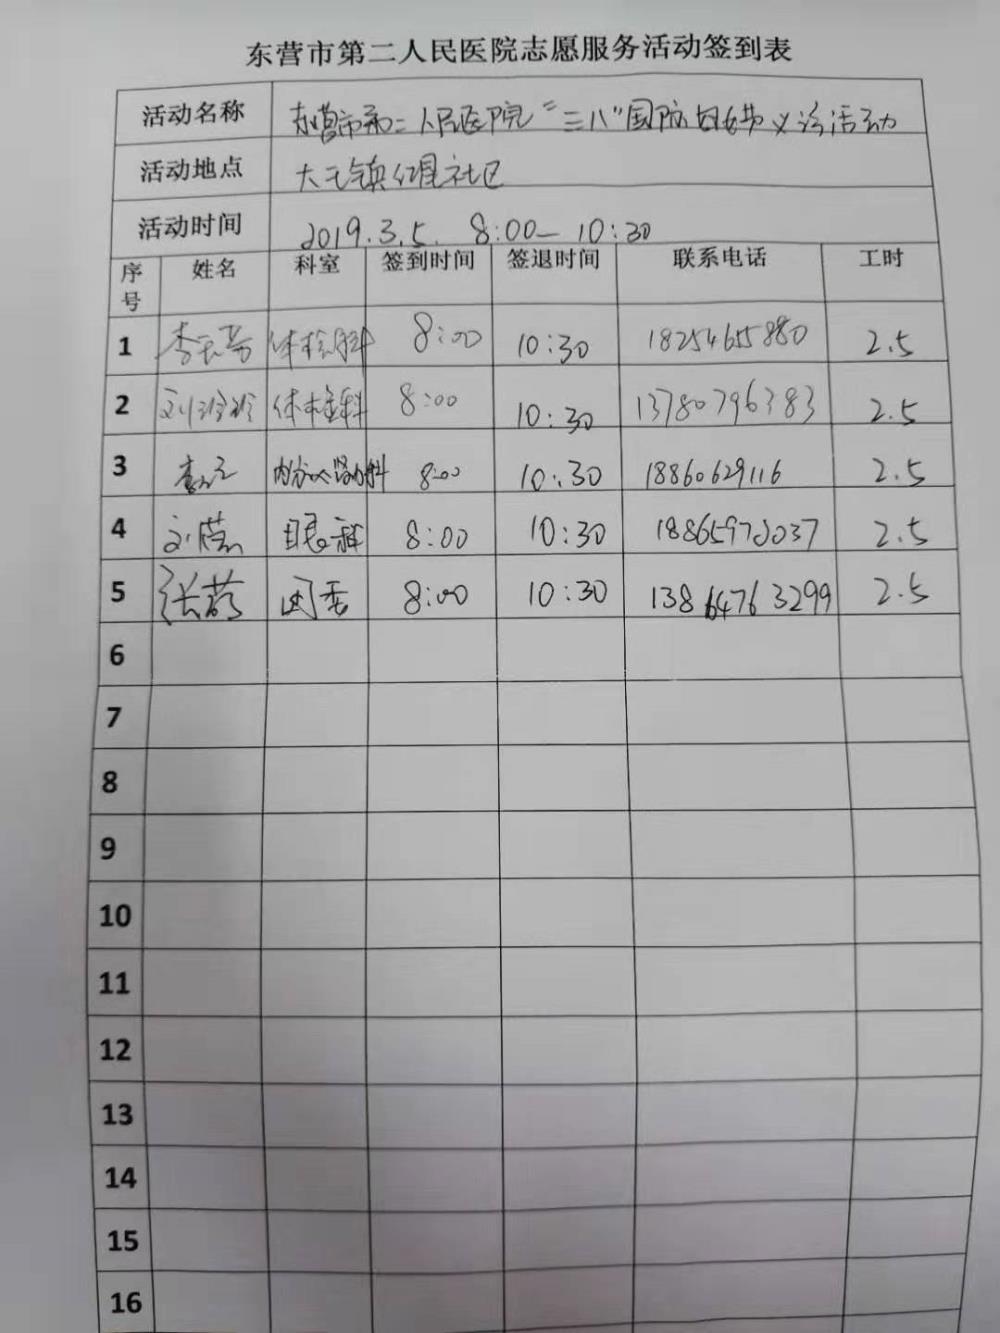 东营市第二人民医院志愿服务活动签到表
活动名称 东营市第二人民医院"三八"国际妇女节义诊活动
活动地点 大王镇红星社区
活动时间 2019.3.5. 8:00—10:30
序号 姓名 科室 签到时间 签退时间 联系电话 工时
1 体检科 8:00 10:30 18254655880 2.5
2 刘玲玲 体检科 8:00 10:30 13780796383 2.5
3 8:00 10:30 18860629116 2.5
4 眼科 8:00 10:30 2.5
5 团委 8:00 10:30 13864763299 2.5
6
7
8
9
10
11
12
13
14
15
16